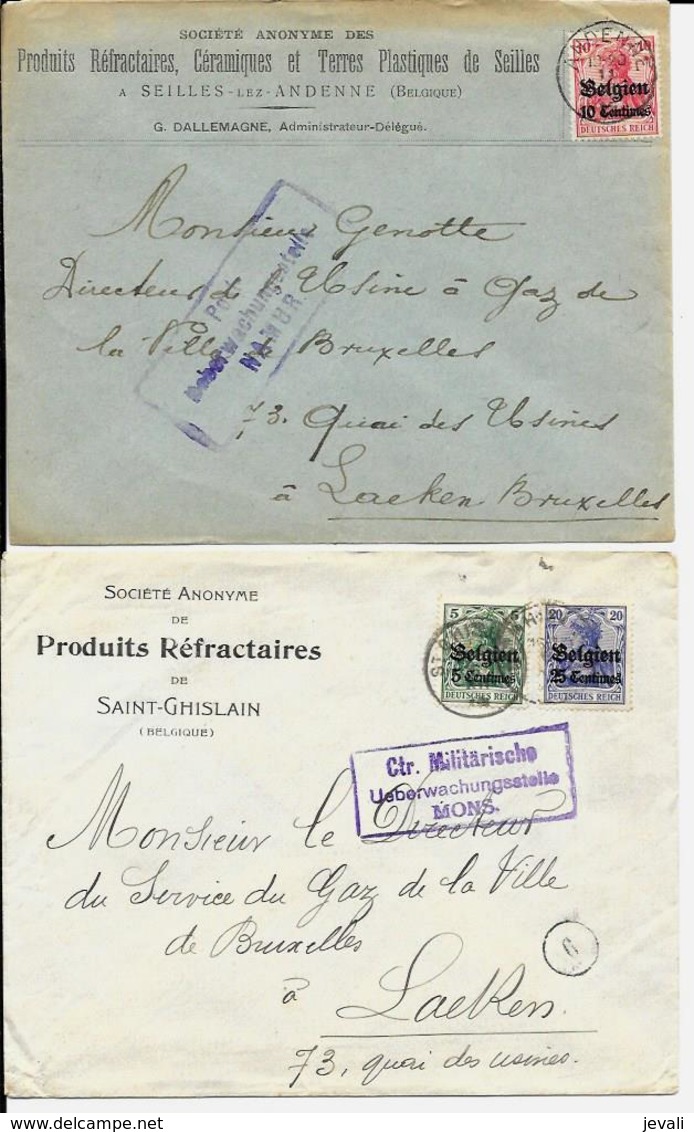 SOCIÉTÉ ANONYME DES
Produits Réfractaires, Céramiques et Terres Plastiques de Seilles
A SEILLES-LEZ-ANDENNE (BELGIQUE)
G. DALLEMAGNE, Administrateur-Délégué.
ANDENNE
10 10
Belgien
10 Centimes
DEUTSCHES REICH
Ueberwachungsstelle
NAMUR.
Monsieur Genotte
Directeur de l'Usine à Gaz de
la Ville de Bruxelles
73. Quai des Usines
à Laeken Bruxelles
SOCIÉTÉ ANONYME
DE
Produits Réfractaires
DE
SAINT-GHISLAIN
(BELGIQUE)
5 5
Belgien
5 Centimes
DEUTSCHES REICH
20 20
Belgien
25 Centimes
DEUTSCHES REICH
Ctr. Militärische
Ueberwachungsstelle
MONS.
Monsieur le Directeur
du Service du Gaz de la Ville
de Bruxelles
à
Laeken
73, quai des usines.
6
jevali
www.delcampe.net